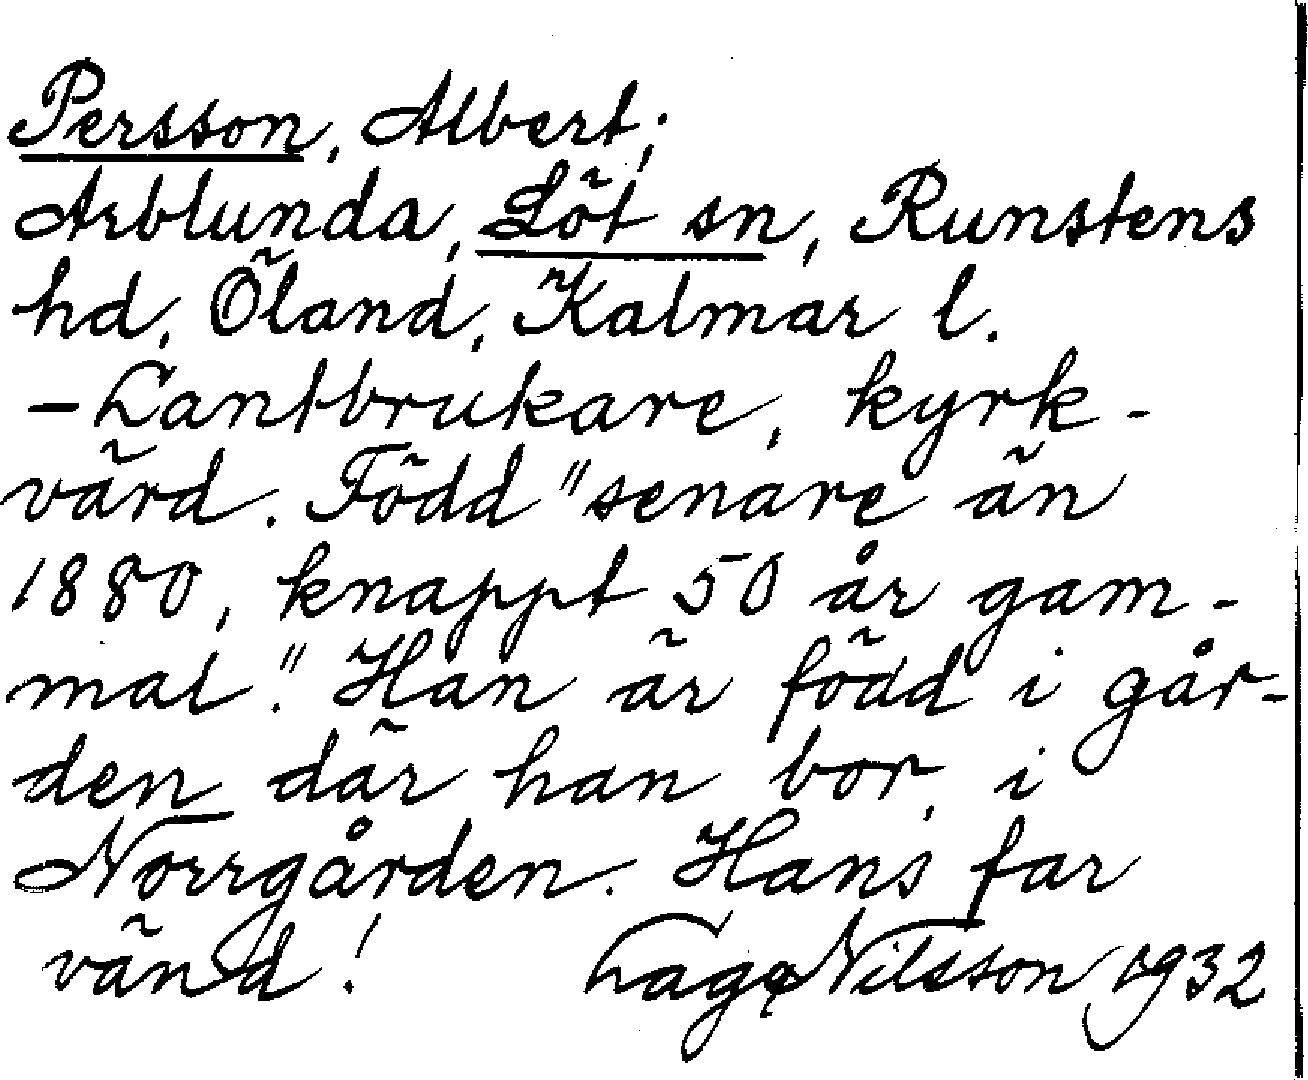 Persson, Albert;
Arblunda, Löt sn, Runstens
hd, Öland, Kalmar l.
- Lantbrukare, kyrk-
värd. Född "senare än
1880, knappt 50 år gam-
mal." Han är född i går-
den där han bor, i
Norrgården. Hans far
vänd! Lage Nilsson 1932